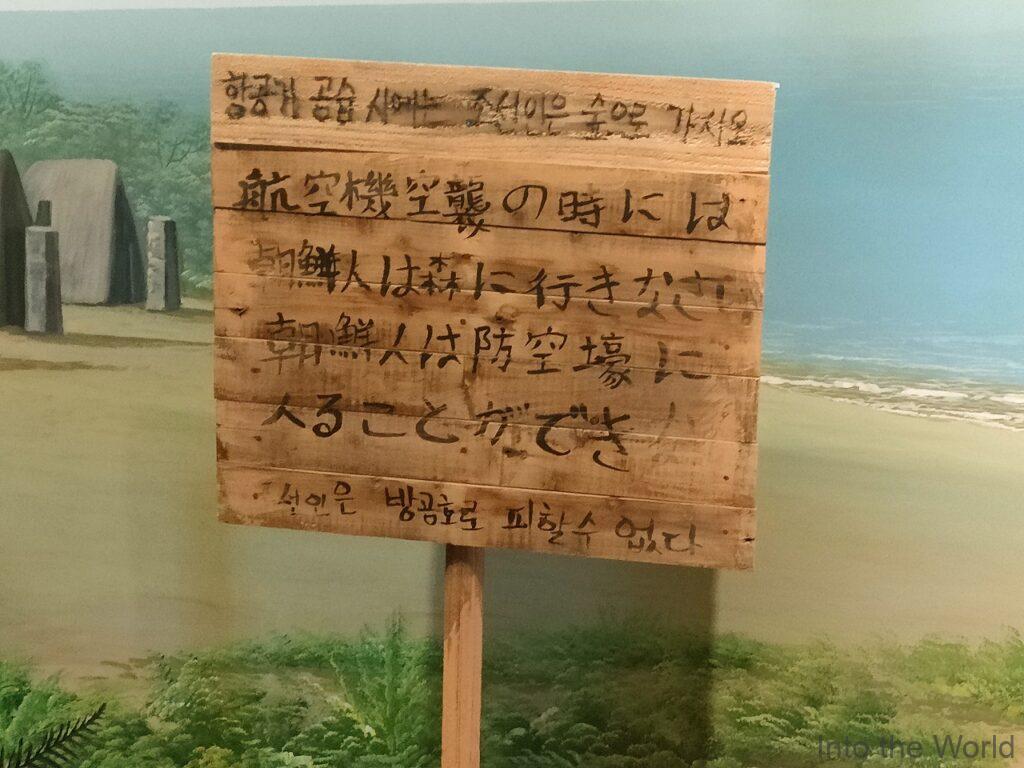 항공기 공습 시에는 조선인은 숲으로 가시오
航空機空襲の時には
朝鮮人は森に行きなさ
朝鮮人は防空壕に
入ることができ
선인은 방공호로 피할수 없다
Into the World